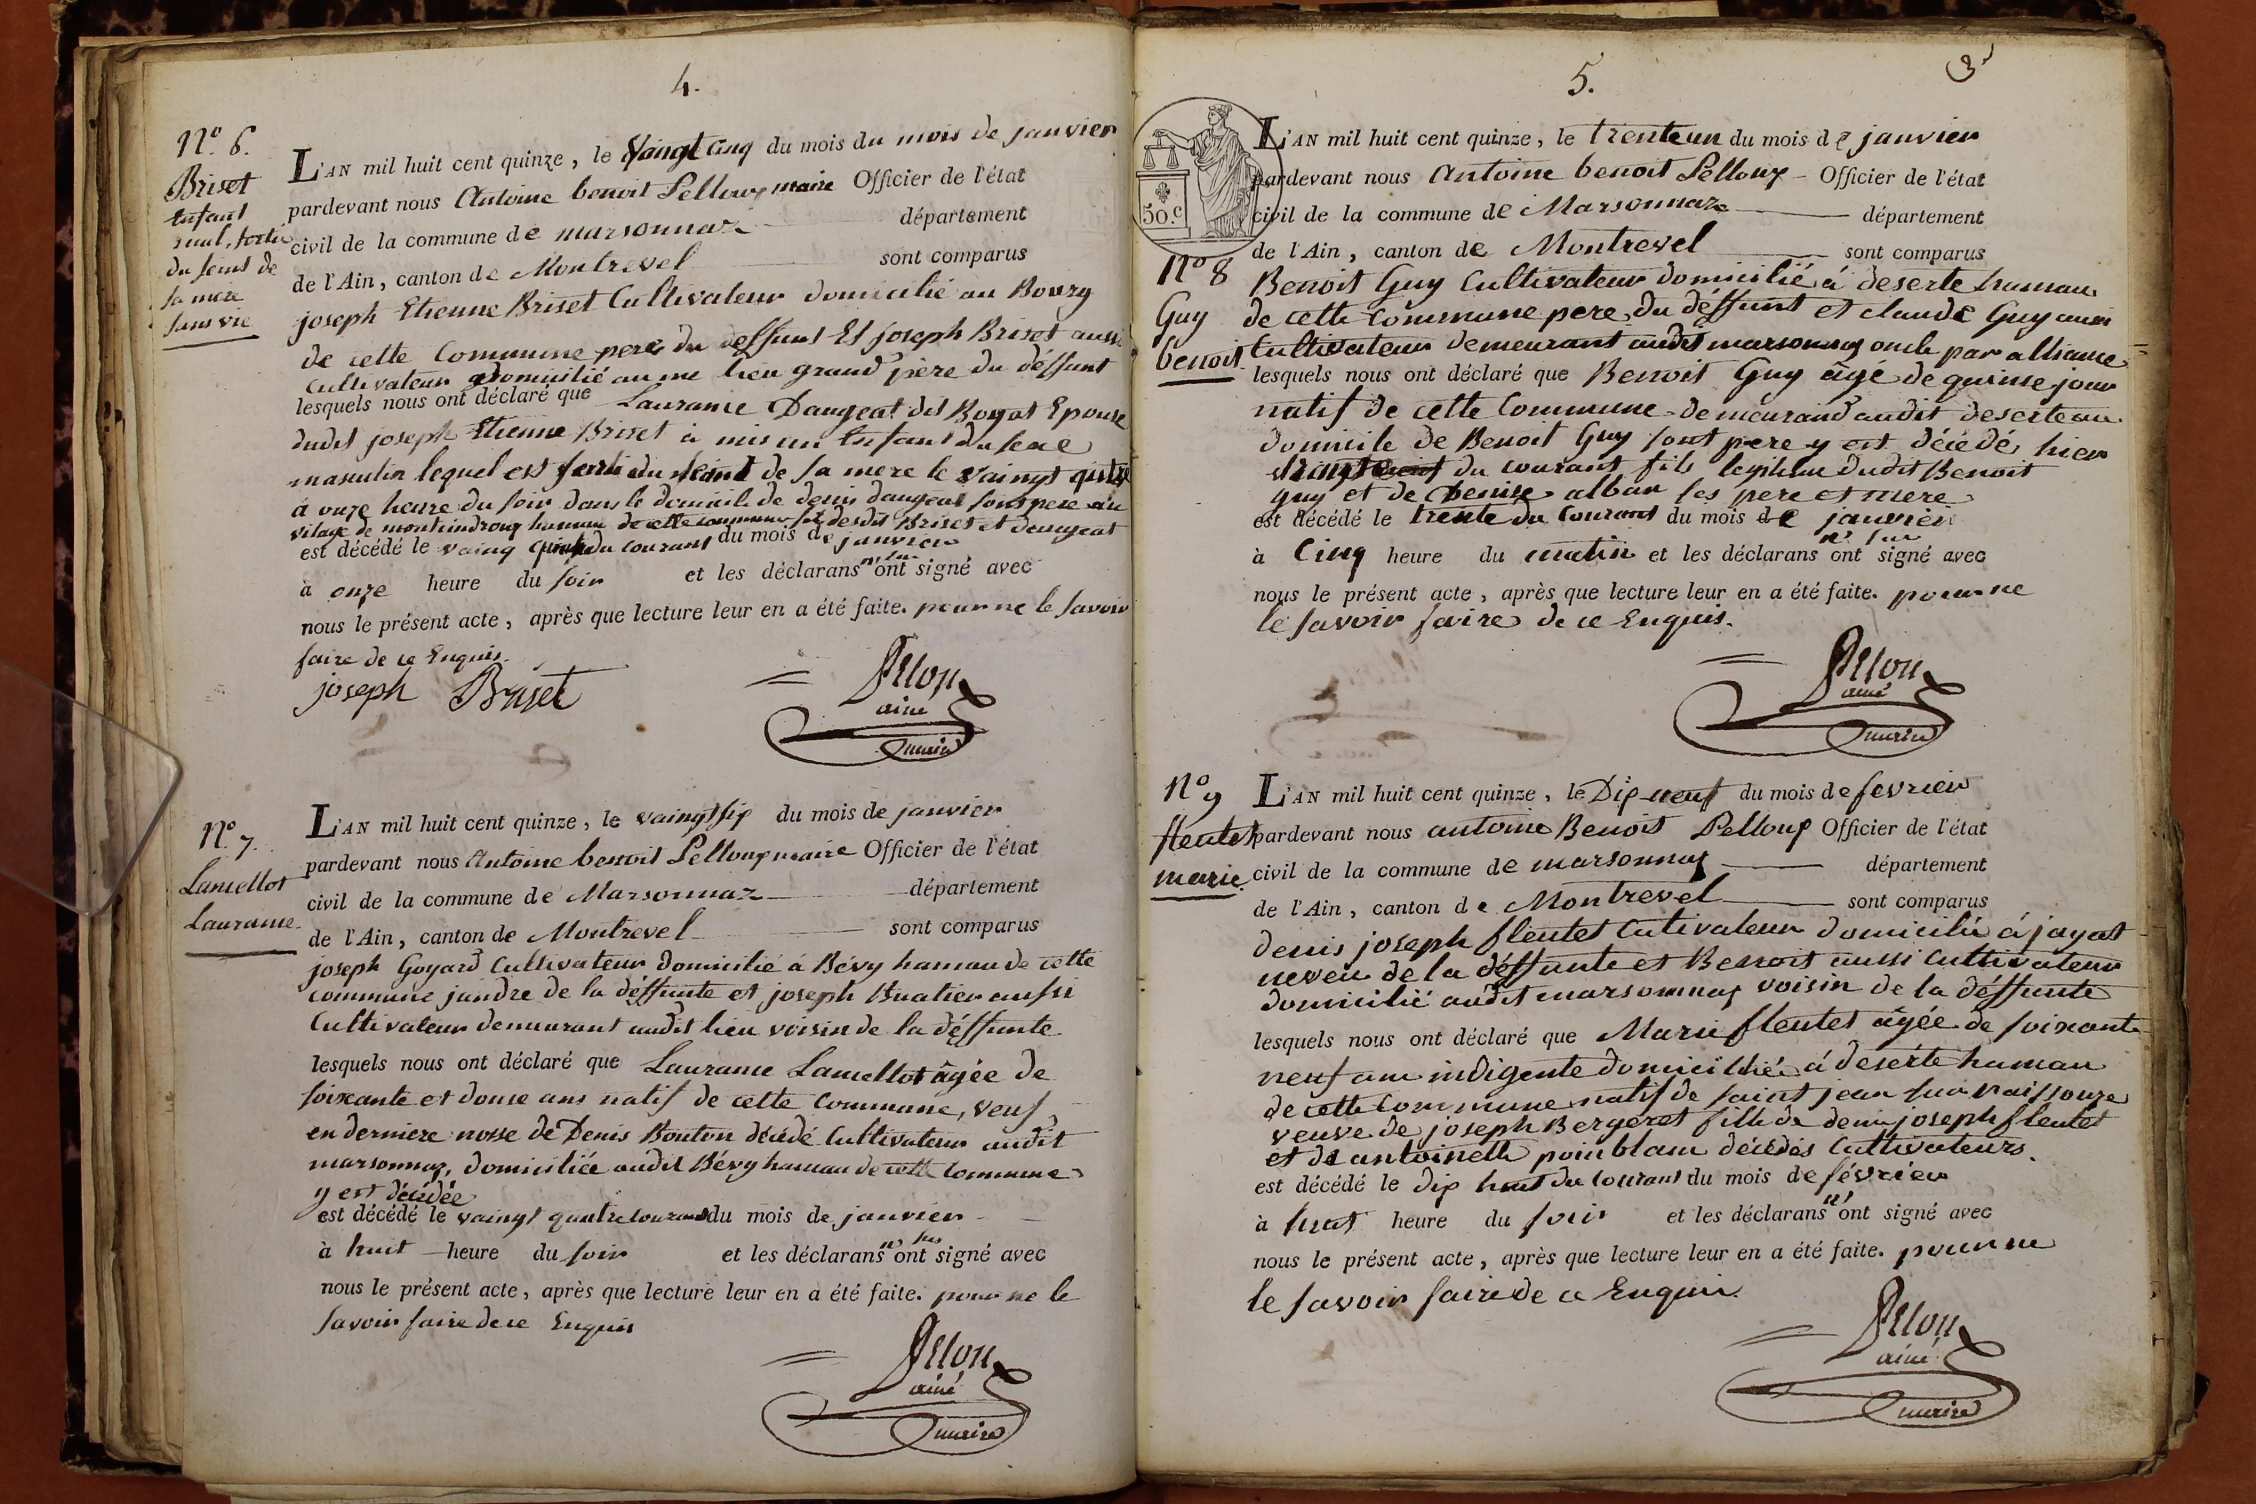 4.
N.º 6.
Briset
Enfant
mal, sortie
du seins de
sa mere
sans vie
L'AN mil huit cent quinze, le Vaingt Cinq du mois du mois de janvier
pardevant nous Antoine benoit Pelloux maire Officier de l'état
civil de la commune de marsonnaz département
de l'Ain, canton de Montrevel sont comparus
joseph Etienne Briset Cultivateur domicilié au Bourg
de cette Commune pere du deffunt Et joseph Briset aussi
cultivateur domicilié au me lieu grand père du déffunt
lesquels nous ont déclaré que Laurance Daugeat dit Royat Epouse
dudit joseph Etienne Briset à mis un Enfant du sexe
masculin lequel est sorti du seint de sa mere le vaingt quatre
à onze heure du soir dans le domicile de denis daugeat sont pere au
vilage de montaindroux hamau de cette commune fils desdit Briset et daugeat
est décédé le vaing quatre du courant du mois de janvier
à onze heure du soir et les déclarans n'ont signé avec
nous le présent acte, après que lecture leur en a été faite. pour ne le savoir
faire de ce Enquis.
joseph Briset
Pelloux
ainé
maire
N.º 7.
Lamellot
Laurance.
L'AN mil huit cent quinze, le vaingt six du mois de janvier
pardevant nous Antoine benoit Pelloux maire Officier de l'état
civil de la commune de Marsonnaz département
de l'Ain, canton de Montrevel sont comparus
joseph Goyard Cultivateur domicilié à Bévy hamau de cette
commune jandre de la déffunte et joseph Buatier aussi
Cultivateur demeurant audit lieu voisin de la déffunte
lesquels nous ont déclaré que Laurance Lamellot âgée de
soixante et douse ans natif de cette Commune, veuf
en derniere nosse de Denis Bouton décédé Cultivateur audit
marsonnaz, domiciliée audit Bévy hamau de cette Commune
y est décédée
est décédé le vaingt quatre courant du mois de janvier
à huit heure du soir et les déclarans n'ont su signé avec
nous le présent acte, après que lecture leur en a été faite. pour ne le
savoir faire de ce Enquis
Pelloux
ainé
maire
5.
3
50.c
L'AN mil huit cent quinze, le trente un du mois de janvier
pardevant nous Antoine benoit Pelloux Officier de l'état
civil de la commune de Marsonnaz département
de l'Ain, canton de Montrevel sont comparus
Nº 8
Guy
benoit
Benoit Guy Cultivateur domicilié à deserte hamau
de cette Commune pere du déffunt et claude Guy aussi
Cultivateur demeurant audit marsonnaz oncle par alliance
lesquels nous ont déclaré que Benoit Guy âgé de quinse jour
natif de cette Commune demeurand audit deserte au
domicile de Benoit Guy sont pere y est décédé hier
du courant fils legitime dudit Benoit
guy et de Denise alban ses pere et mere
est décédé le trente du Courant du mois de janvier
à Cinq heure du matin et les déclarans n'ont su signé avec
nous le présent acte, après que lecture leur en a été faite. pour ne
le savoir faire de ce Enquis.
Pelloux
ainé
maire
Nº 9
fleutet
marie
L'AN mil huit cent quinze, le Dix neuf du mois de fevrier
pardevant nous antoine Benoit Pelloux Officier de l'état
civil de la commune de marsonnaz département
de l'Ain, canton de Montrevel sont comparus
denis joseph fleutet Cutivateur domicilié à jayat
neveu de la déffunte et Benoit aussi Cultivateur
domicilié audit marsonnaz voisin de la déffunte
lesquels nous ont déclaré que Marie fleutet âgée de soixante
neuf ans indigente domiciliée à deserte hamau
de cette Commune natif de saint jean sur raissouze
veuve de joseph Bergeret fille de denis joseph fleutet
et de antoinette poinblanc décédés Cultivateurs.
est décédé le dix huit du courant du mois de février
à huit heure du soir et les déclarans n'ont signé avec
nous le présent acte, après que lecture leur en a été faite. pour ne
le savoir faire de ce Enquis
Pelloux
ainé
maire